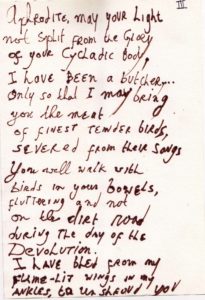 III
Aphrodite, may your Light
not split from the Glory
of your Cycladic Body,
I have been a butcher...
Only so that I may bring
you the meat
of finest tender birds,
severed from their songs
You will walk with
birds in your BOWELS,
fluttering and not
on the dirt road
during the day of the
Devolution.
I have bled from my
flame-lit wings in my
ANKLES, to unshroud you